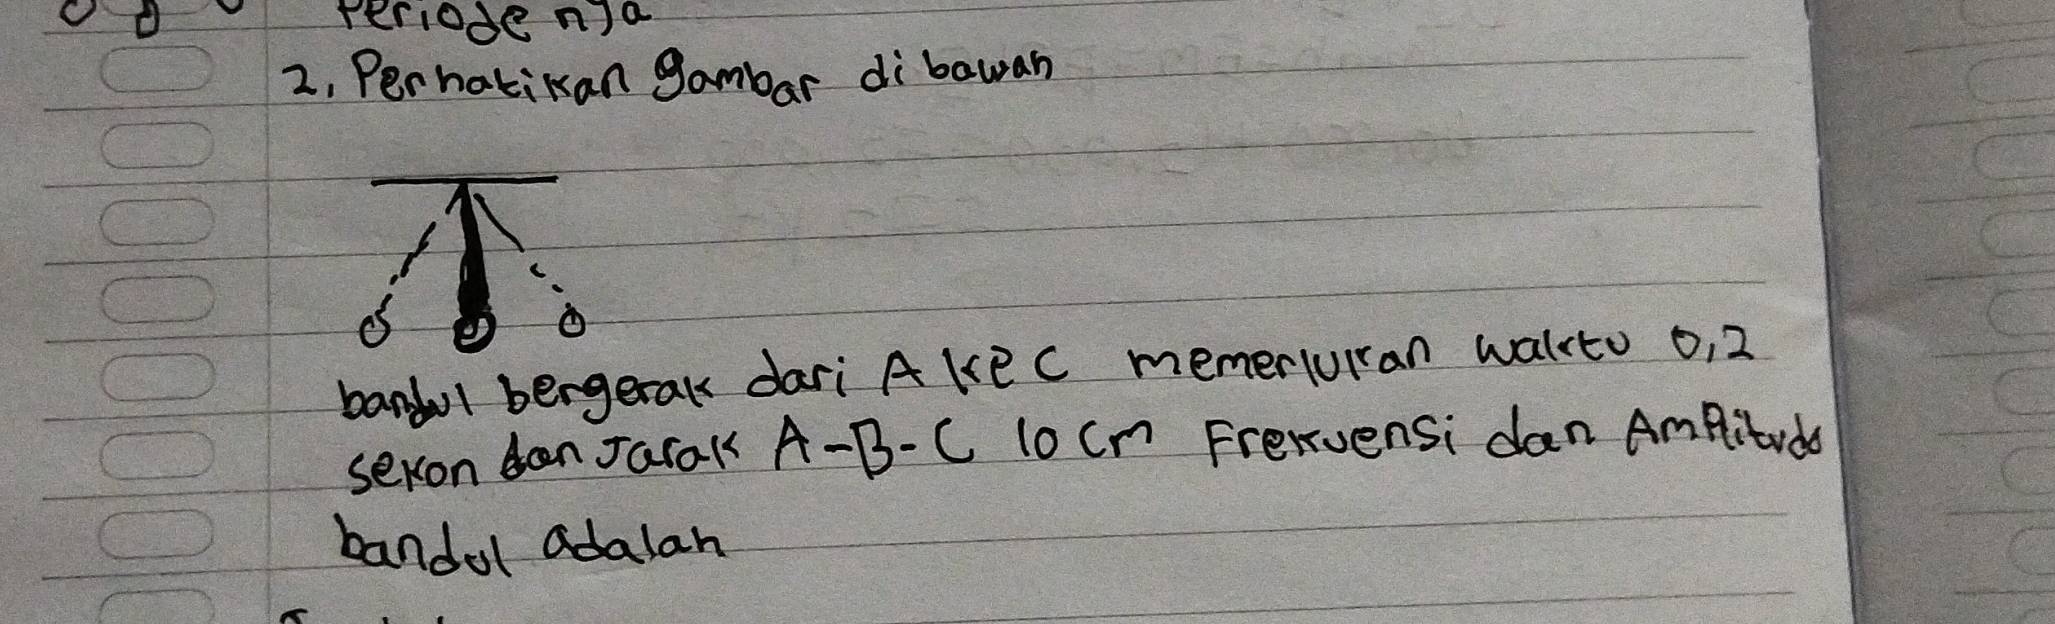 Periode nya
2. Perhatikan gambar di bawah
bandul bergerak dari A ke C memerlukan waktu 0,2
sekon dan Jarak A-B-C 10 cm Frekuensi dan Amplitudo
bandul adalah